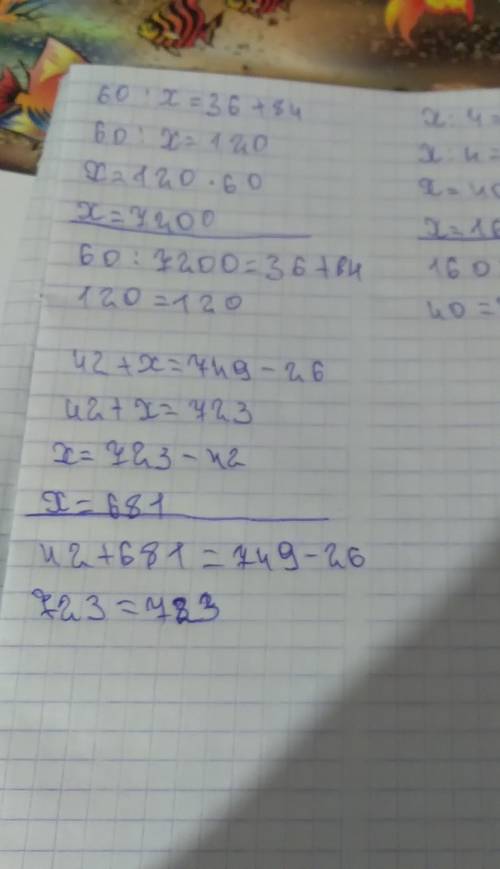 60 : x = 36 + 84
60 : x = 120
x = 120 · 60
x = 7200
60 : 7200 = 36 + 84
120 = 120
42 + x = 749 - 26
42 + x = 723
x = 723 - 42
x = 681
42 + 681 = 749 - 26
723 = 723
x : 4 =
x : 4 =
x = 40
x = 16
160
40 =